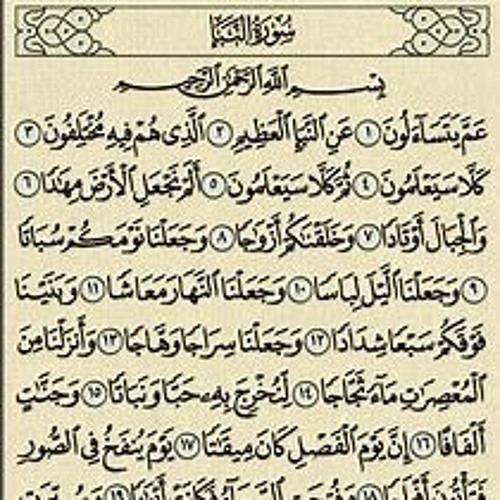 سُورَةُ النَّبَإِ
بِسْمِ اللَّهِ الرَّحْمَٰنِ الرَّحِيمِ
عَمَّ يَتَسَآءَلُونَ ١ عَنِ النَّبَإِ الْعَظِيمِ ٢ الَّذِى هُمْ فِيهِ مُخْتَلِفُونَ ٣
كَلَّا سَيَعْلَمُونَ ٤ ثُمَّ كَلَّا سَيَعْلَمُونَ ٥ أَلَمْ نَجْعَلِ الْأَرْضَ مِهَٰدًا ٦
وَالْجِبَالَ أَوْتَادًا ٧ وَخَلَقْنَٰكُمْ أَزْوَٰجًا ٨ وَجَعَلْنَا نَوْمَكُمْ سُبَاتًا
٩ وَجَعَلْنَا الَّيْلَ لِبَاسًا ١٠ وَجَعَلْنَا النَّهَارَ مَعَاشًا ١١ وَبَنَيْنَا
فَوْقَكُمْ سَبْعًا شِدَادًا ١٢ وَجَعَلْنَا سِرَاجًا وَهَّاجًا ١٣ وَأَنزَلْنَا مِنَ
الْمُعْصِرَٰتِ مَآءً ثَجَّاجًا ١٤ لِّنُخْرِجَ بِهِۦ حَبًّا وَنَبَاتًا ١٥ وَجَنَّٰتٍ
أَلْفَافًا ١٦ إِنَّ يَوْمَ الْفَصْلِ كَانَ مِيقَٰتًا ١٧ يَوْمَ يُنفَخُ فِى الصُّورِ
فَتَأْتُونَ أَفْوَاجًا ١٨